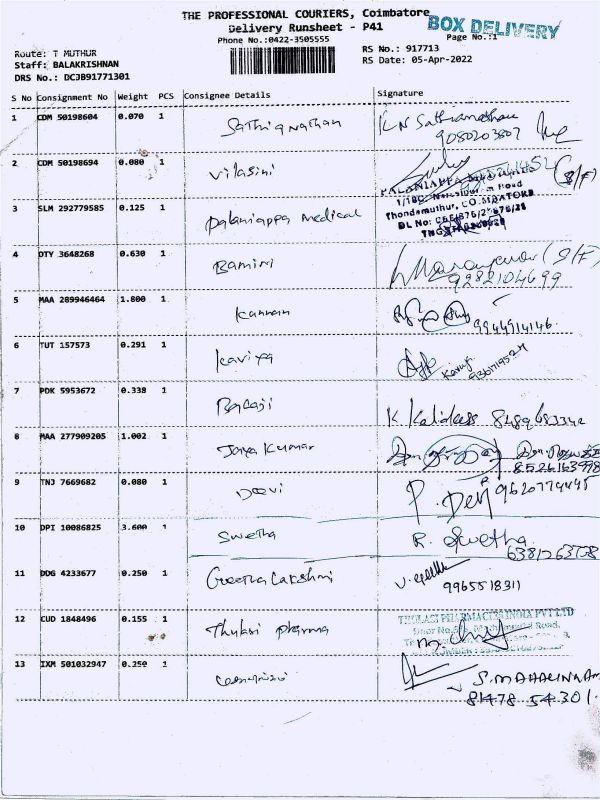 THE PROFESSIONAL COURIERS, Coimbatore
Delivery Runsheet - P41
BOX DELIVERY
Phone No.:0422-3505555
Page No.:1
Route: T MUTHUR
RS No.: 917713
Staff: BALAKRISHNAN
RS Date: 05-Apr-2022
DRS No.: DCJB91771301
S No Consignment No Weight PCS Consignee Details Signature
1 CDM 50198604 0.070 1 Sathiyanathan K N Sathianathan
9080203807
2 CDM 50198694 0.080 1 Vilasini
PALANIAPPA
Thondamuthur, COIMBATORE
3 SLM 292779585 0.125 1 Palaniappa medical
4 DTY 3648268 0.630 1 Bamini (S/F)
9282104699
5 MAA 289946464 1.800 1 Kannan 9944914146
6 TUT 157573 0.291 1 Kaviya
7 PDK 5953672 0.338 1 Balaji K. Kalidass
8 MAA 277909205 1.002 1 Jaya Kumar
8526163998
9 TNJ 7669682 0.080 1 Devi P. Devi 9620779445
10 DPI 10086825 3.600 1 Swetha R. Swetha
11 DDG 4233677 0.250 1 Geetha Lakshmi
9965518311
12 CUD 1848496 0.155 1 Thulasi pharma
THULASI PHARMACIES INDIA PVT LTD
13 IXM 501032947 0.250 1
81478 54301